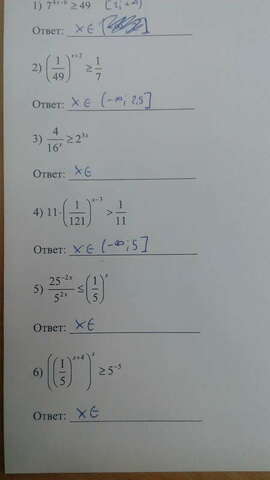 1) 7^(4x-6) ≥ 49 [2; +∞)
Ответ: x ∈ [
2) (1/49)^(x+2) ≥ 1/7
Ответ: x ∈ (-∞; 2,5]
3) 4/16^x ≥ 2^(3x)
Ответ: x ∈
4) 11·(1/121)^(x-3) > 1/11
Ответ: x ∈ (-∞; 5]
5) 25^(-2x)/5^(2x) ≤ (1/5)^x
Ответ: x ∈
6) ((1/5)^(x+4))^x ≥ 5^(-5)
Ответ: x ∈